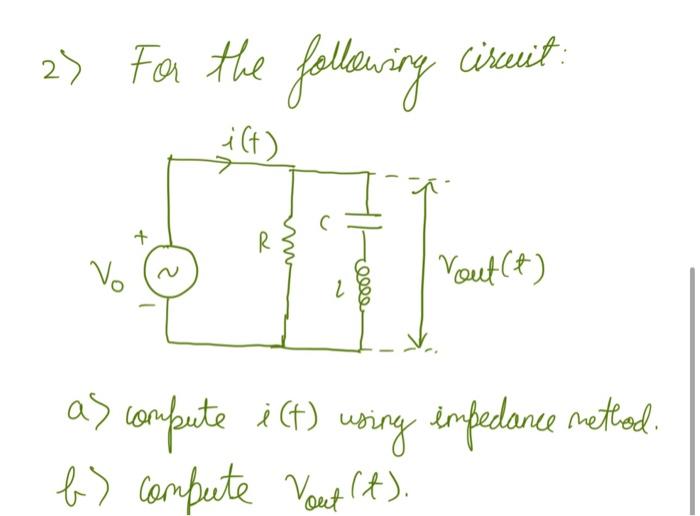 2) For the following circuit:
i(t)
+
R
C
V₀
~
l
Vout(t)
-
a) compute i(t) using impedance method.
b) compute Vout(t).